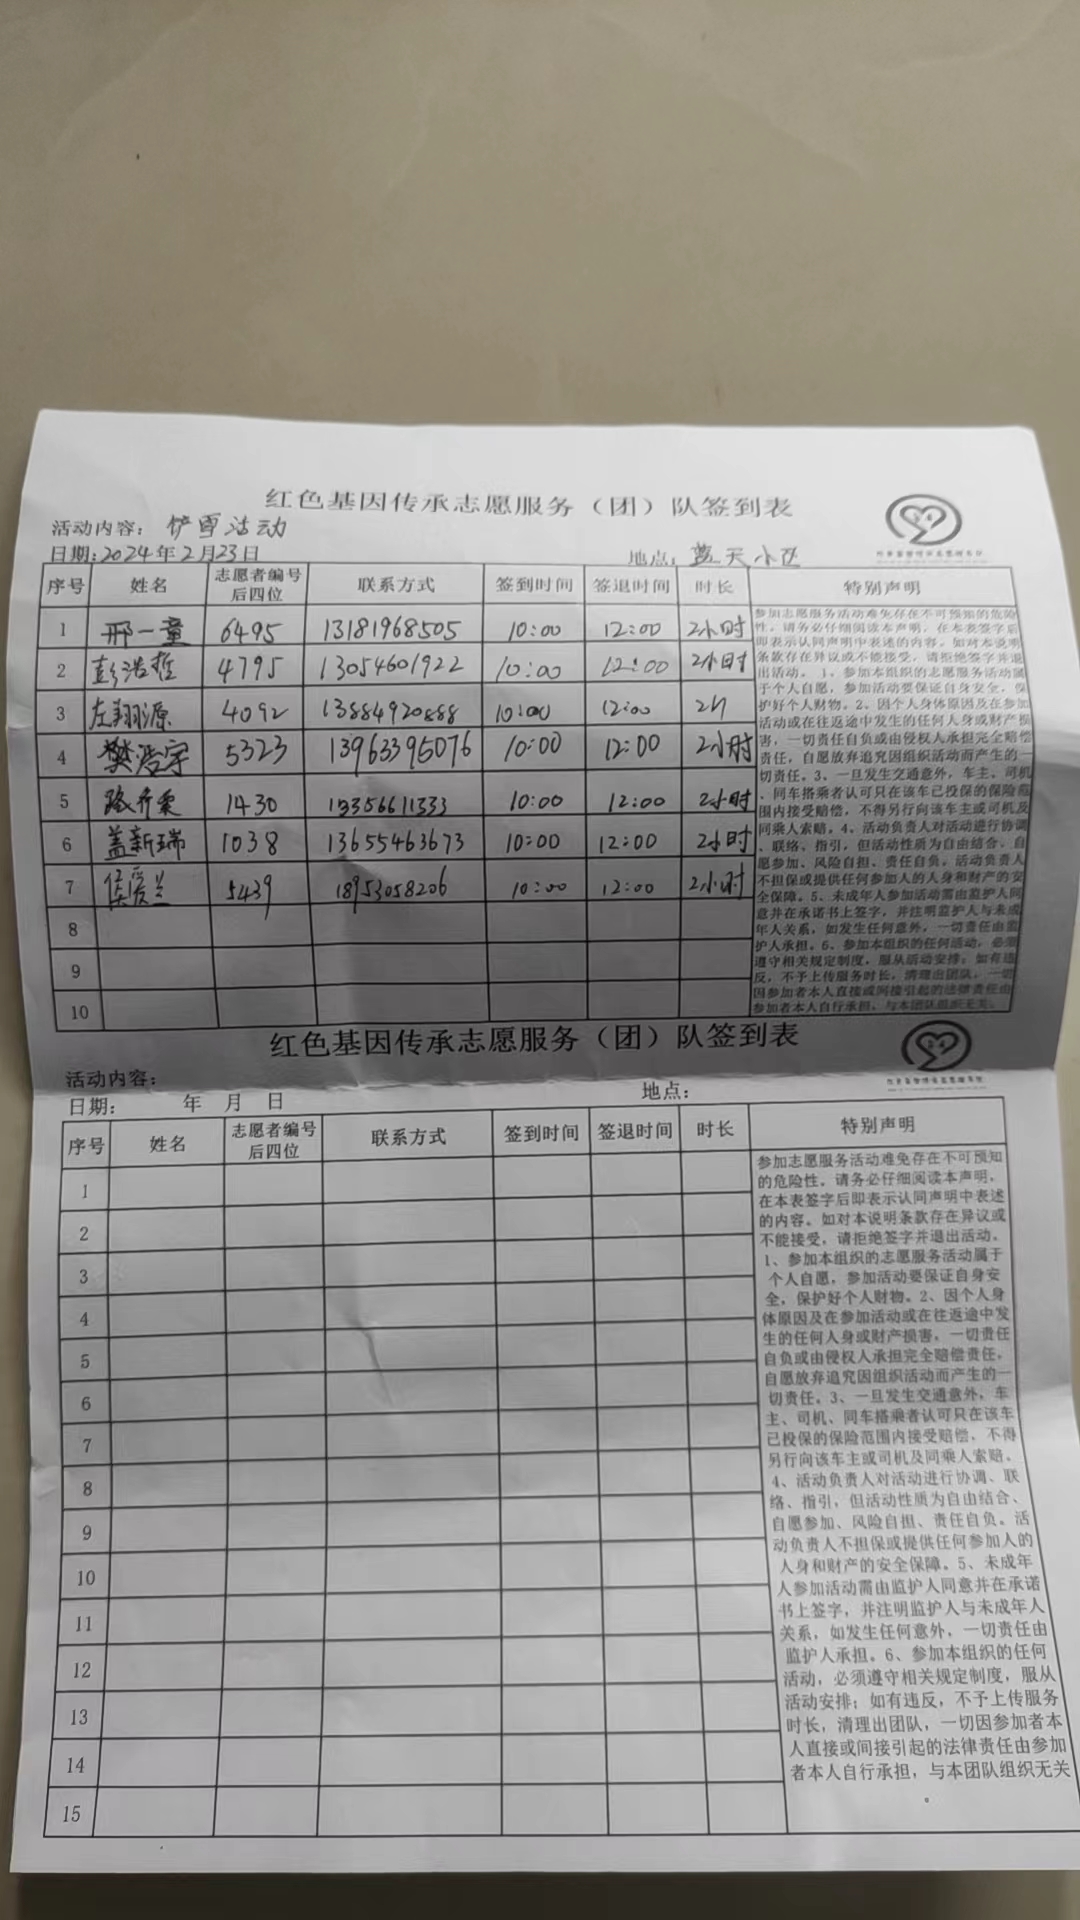 红色基因传承志愿服务（团）队签到表
活动内容：铲雪活动
日期：2024年2月23日 地点：蓝天小区
序号 姓名 志愿者编号后四位 联系方式 签到时间 签退时间 时长 特别声明
1 邢一童 6495 13181968505 10:00 12:00 2小时
2 彭浩哲 4795 13054601922 10:00 12:00 2小时
3 左翔源 4092 13884920888 10:00 12:00 2h
4 樊浩宇 5323 13963395076 10:00 12:00 2小时
5 1430 10:00 12:00 2小时
6 盖新瑞 1038 13655463673 10:00 12:00 2小时
7 侯爱兰 5439 18953058206 10:00 12:00 2小时
8
9
10
参加志愿服务活动难免存在不可预知的危险
性，请务必仔细阅读本声明，在本表签字后
即表示认同声明中表述的内容。如对本说明
条款存在异议或不能接受，请拒绝签字并退
出活动。1、参加本组织的志愿服务活动属
于个人自愿，参加活动要保证自身安全，保
护好个人财物。2、因个人身体原因及在参加
活动或在往返途中发生的任何人身或财产损
害，一切责任自负或由侵权人承担完全赔偿
责任，自愿放弃追究因组织活动而产生的一
切责任。3、一旦发生交通意外，车主、司机
、同车搭乘者认可只在该车已投保的保险范
围内接受赔偿，不得另行向该车主或司机及
同乘人索赔。4、活动负责人对活动进行协调
、联络、指引，但活动性质为自由结合、自
愿参加、风险自担、责任自负。活动负责人
不担保或提供任何参加人的人身和财产的安
全保障。5、未成年人参加活动需由监护人同
意并在承诺书上签字，并注明监护人与未成
年人关系，如发生任何意外，一切责任由监
护人承担。6、参加本组织的任何活动，必须
遵守相关规定制度，服从活动安排；如有违
反，不予上传服务时长，清理出团队，一切
因参加者本人直接或间接引起的法律责任由
参加者本人自行承担，与本团队组织无关。
红色基因传承志愿服务（团）队签到表
活动内容：
日期： 年 月 日 地点：
序号 姓名 志愿者编号后四位 联系方式 签到时间 签退时间 时长 特别声明
1
2
3
4
5
6
7
8
9
10
11
12
13
14
15
参加志愿服务活动难免存在不可预知
的危险性，请务必仔细阅读本声明，
在本表签字后即表示认同声明中表述
的内容。如对本说明条款存在异议或
不能接受，请拒绝签字并退出活动。
1、参加本组织的志愿服务活动属于
个人自愿，参加活动要保证自身安
全，保护好个人财物。2、因个人身
体原因及在参加活动或在往返途中发
生的任何人身或财产损害，一切责任
自负或由侵权人承担完全赔偿责任，
自愿放弃追究因组织活动而产生的一
切责任。3、一旦发生交通意外，车
主、司机、同车搭乘者认可只在该车
已投保的保险范围内接受赔偿，不得
另行向该车主或司机及同乘人索赔。
4、活动负责人对活动进行协调、联
络、指引，但活动性质为自由结合、
自愿参加、风险自担、责任自负。活
动负责人不担保或提供任何参加人的
人身和财产的安全保障。5、未成年
人参加活动需由监护人同意并在承诺
书上签字，并注明监护人与未成年人
关系，如发生任何意外，一切责任由
监护人承担。6、参加本组织的任何
活动，必须遵守相关规定制度，服从
活动安排；如有违反，不予上传服务
时长，清理出团队，一切因参加者本
人直接或间接引起的法律责任由参加
者本人自行承担，与本团队组织无关
。